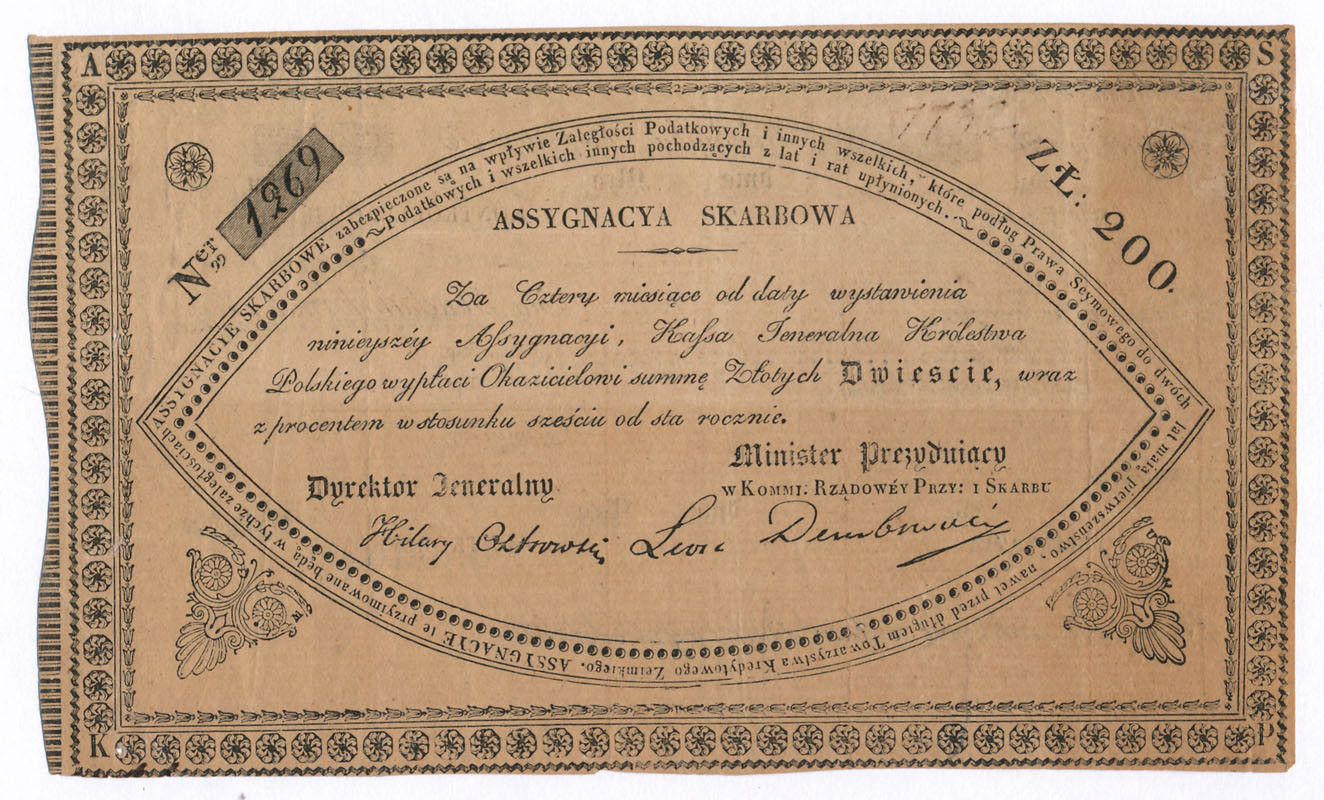 A S
Ner 1269
7732
ZŁ: 200.
ASSYGNACYIE SKARBOWE zabezpieczone są na wpływie Zaległości Podatkowych i innych wszelkich, które podług Prawa Seymowego do dwóch
lat mają pierwszeństwo, nawet przed długiem Towarzystwa Kredytowego Zeimkiego. ASSYGNACYIE te przyimowane będą w tychże zaległościach
Podatkowych i wszelkich innych pochodzących z lat i rat upłynionych.
ASSYGNACYA SKARBOWA
Za Cztery miesiące od daty wystawienia
ninieyszéy Assygnacyi, Kassa Jeneralna Królestwa
Polskiego wypłaci Okazicielowi summę Złotych Dwiescie, wraz
z procentem w stosunku sześciu od sta rocznie.
Dyrektor Jeneralny
Minister Prezyduiący
W KOMMI: RZĄDOWÉY PRZY: I SKARBU
Hilary Ostrowski
Leon Dembowski
K P